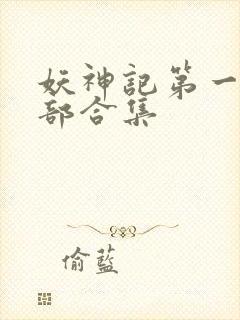 妖神記第一
部合集
偷藍